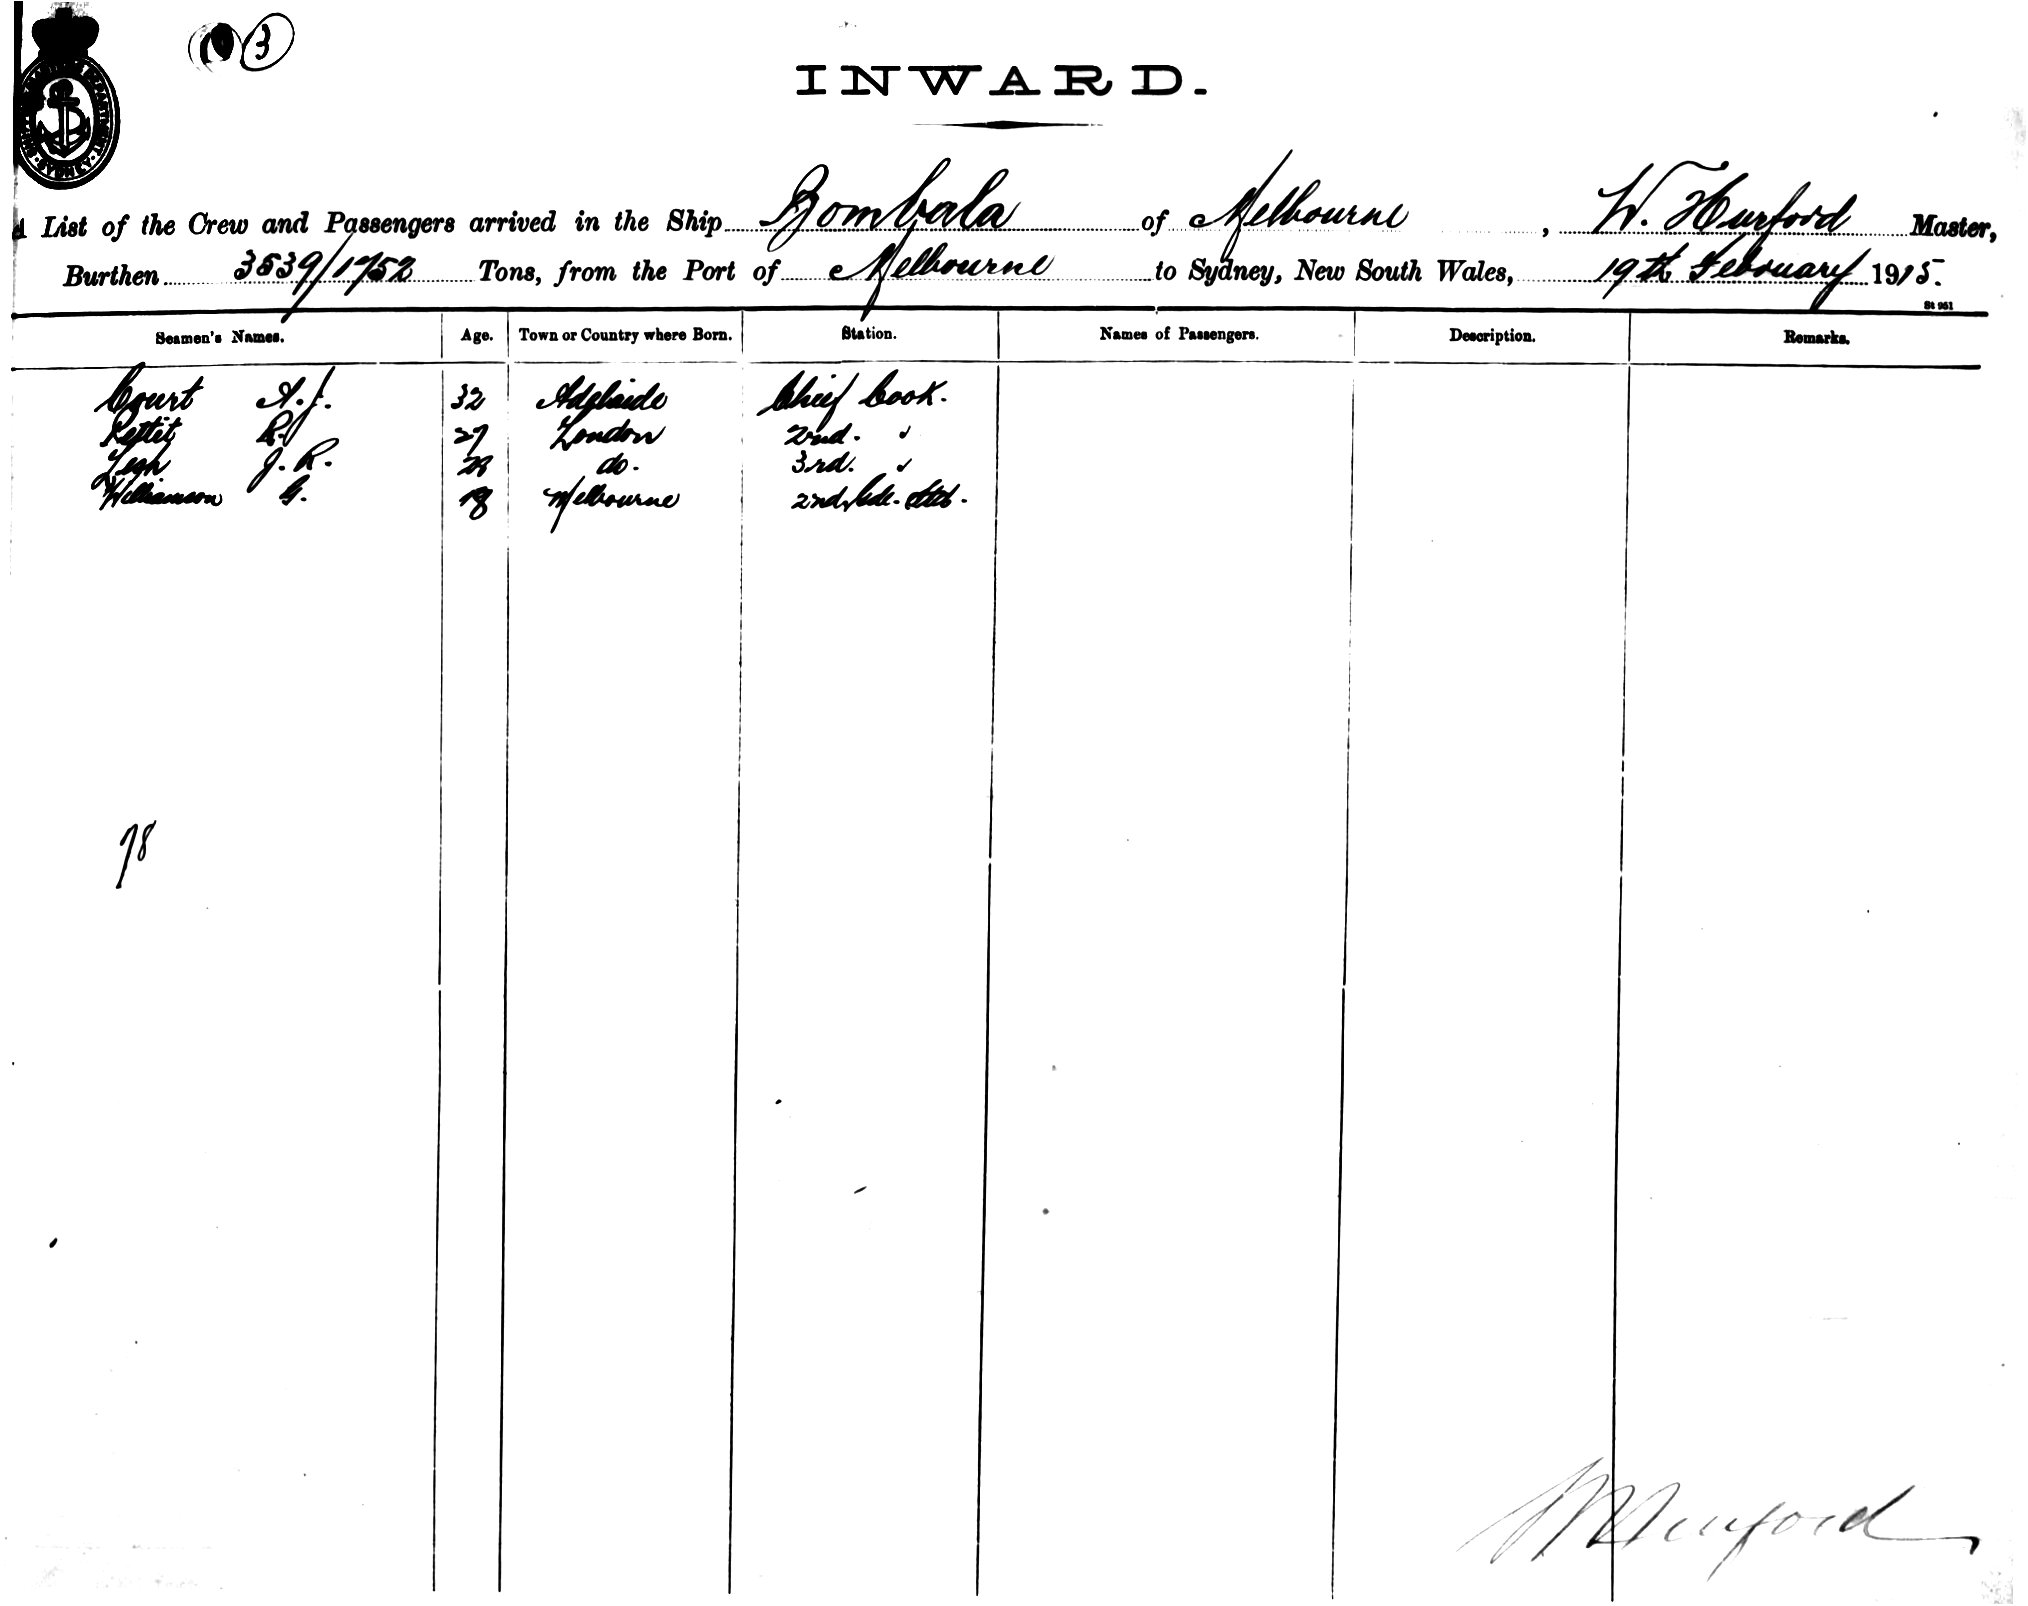 3
INWARD.
List of the Crew and Passengers arrived in the Ship Bombala of Melbourne, W. Hurford Master,
Burthen 3539/1752 Tons, from the Port of Melbourne to Sydney, New South Wales, 19th February 1915.
St 961
Seamen's Names. Age. Town or Country where Born. Station. Names of Passengers. Description. Remarks.
Court A.J. 32 Adelaide Chief Cook.
Pettit R. 27 London 2nd. "
J.R. 28 do. 3rd. "
Williamson G. 18 Melbourne 2nd
78
W Hurford